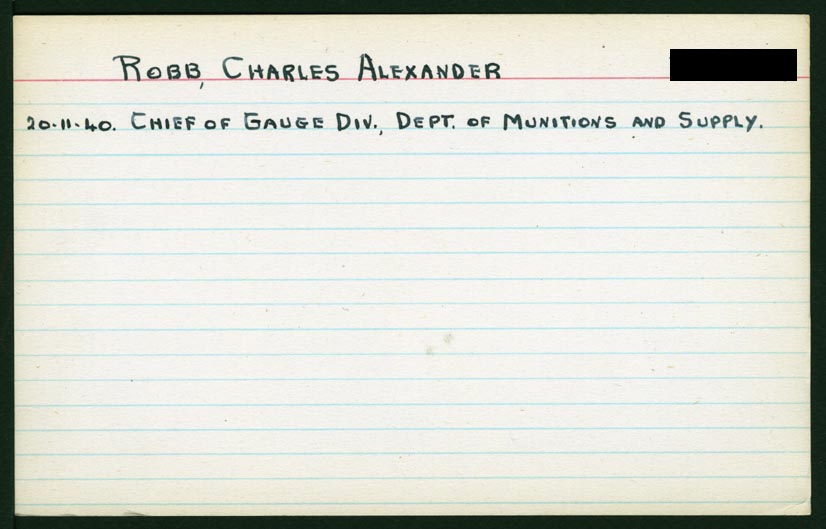 ROBB, CHARLES ALEXANDER
20-11-40. CHIEF OF GAUGE DIV., DEPT. OF MUNITIONS AND SUPPLY.